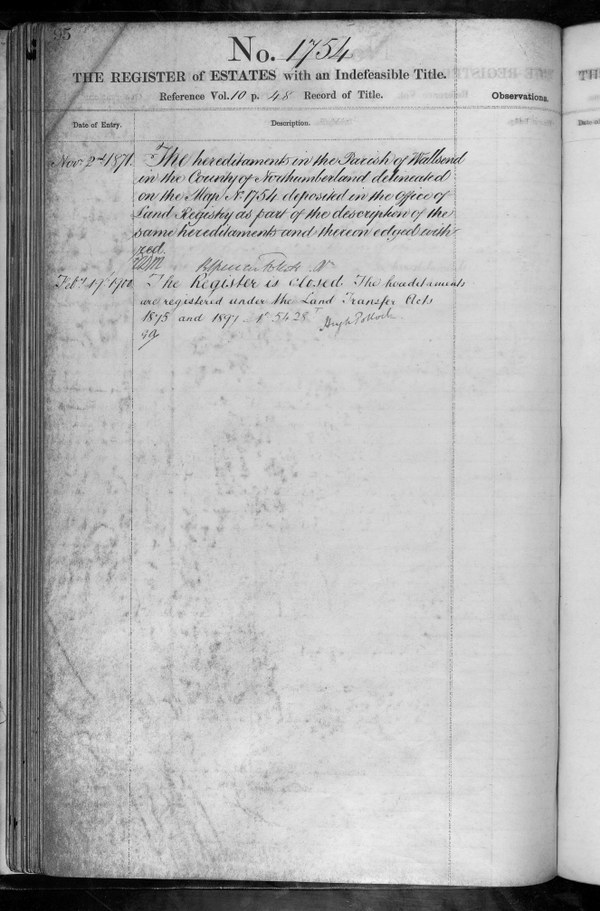 95
No. 1754
THE REGISTER of ESTATES with an Indefeasible Title.
Reference Vol. 10 p. 48 Record of Title.
Observations.
Date of Entry.
Description.
Nov. 2nd 1871. The hereditaments in the Parish of Wallsend
in the County of Northumberland delineated
on the Map No. 1754 deposited in the Office of
Land Registry as part of the description of the
same hereditaments and thereon edged with
red.
Feby 19th 1900 The Register is closed The hereditaments
are registered under the Land Transfer Acts
1875 and 1897. No. 5428
Hugh Pollock